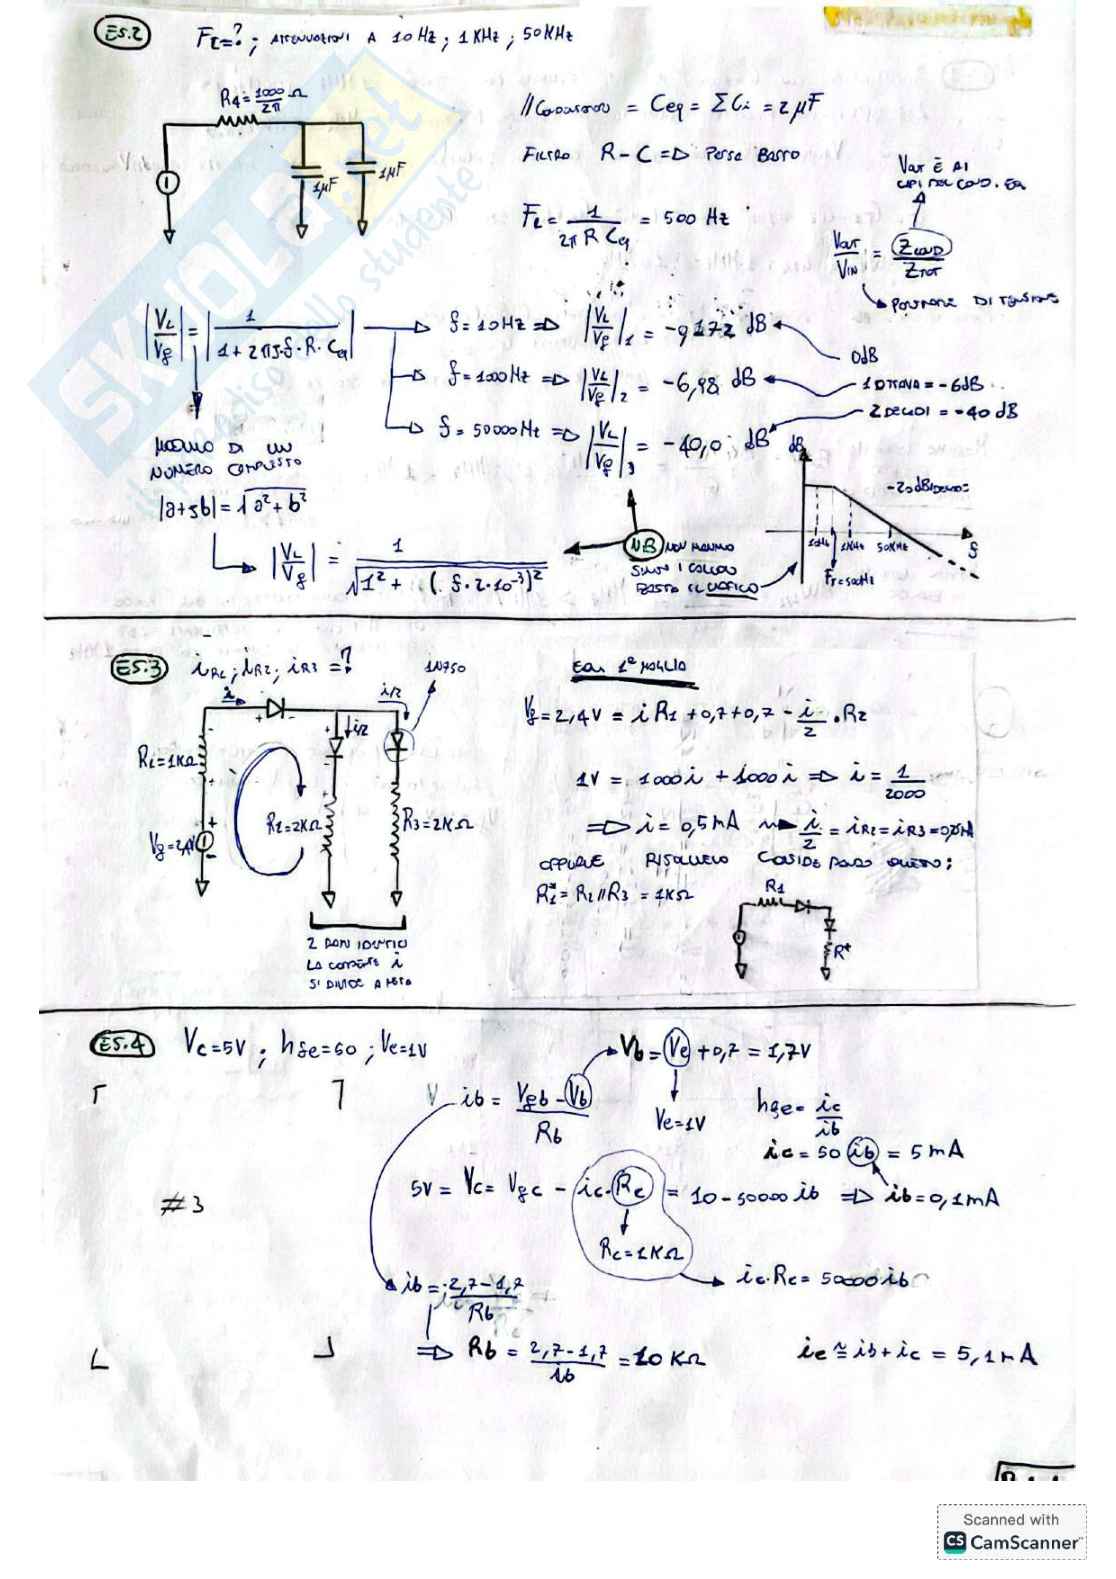 ES.2 Ft=? ; ATTENUAZIONI A 10 Hz ; 1 KHz ; 50 KHz
R4 = 1000/2π Ω
1μF
1μF
// = Ceq = ΣCi = 2 μF
FILTRO R-C => PASSA BASSO
Ft = 1/(2π R Ceq) = 500 Hz
Vout È AI
CAPI DEL COND. EQ
Vout/VIN = ZCOND/ZTOT
DI TENSIONE
|VL/Vg| = |1/(1 + 2πj·f·R·Ceq)|
f = 10Hz => |VL/Vg|1 = dB
0dB
f = 1000 Hz => |VL/Vg|2 = -6,98 dB
1 OTTAVA = -6dB
f = 50000Hz => |VL/Vg|3 = -40,0 dB
2 DECADI = -40 dB
MODULO DI UN
NUMERO COMPLESSO
|a+jb| = √(a²+b²)
|VL/Vg| = 1/√(1² + (f·2·10⁻³)²)
NB NON
BASTA IL GRAFICO
dB
-20dB/DECADE
10Hz 1KHz 50KHz f
Ft=500Hz
ES.3 iR1 ; iR2 ; iR3 = ?
1N750
i
i/2
i/2
R1=1KΩ
R2=2KΩ
R3=2KΩ
Vg=2,4V
2 RAMI IDENTICI
LA CORRENTE i
SI DIVIDE A METÀ
EQ. 1ª MAGLIA
Vg = 2,4V = i R1 + 0,7 + 0,7 - i/2 · R2
1V = 1000 i + 1000 i => i = 1/2000
=> i = 0,5 mA i/2 = iR2 = iR3 =
OPPURE RISOLVERLO CONSIDERANDO QUESTO :
R2* = R2//R3 = 1KΩ
R1
R*
ES.4 Vc=5V ; hfe=50 ; Ve=1V
#3
ib = (Vgb - Vb)/Rb
Vb = Ve + 0,7 = 1,7V
Ve=1V
hfe = ic/ib
ic = 50 ib = 5 mA
5V = Vc = Vgc - ic·Rc = 10 - 50000 ib => ib = 0,1 mA
Rc = 1KΩ
ic·Rc = 50000 ib
ib = (2,7 - 1,7)/Rb
=> Rb = (2,7 - 1,7)/ib = 10 KΩ
ie ≅ ib + ic = 5,1 mA
SKUOLA.net
Scanned with
CS CamScanner